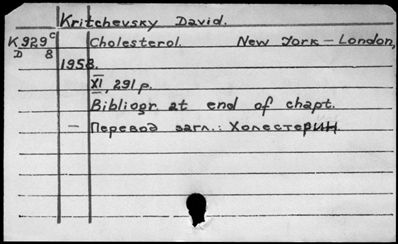 Kritchevsky David.
K929c Cholesterol. New York - London,
D 8
1958.
XI, 291 p.
Bibliogr. at end of chapt.
- Перевод загл.: Холестерин.